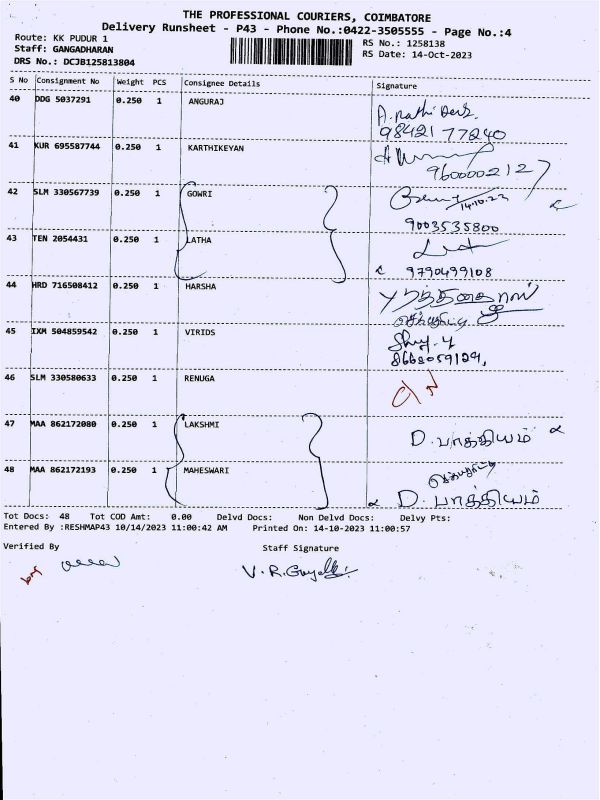 THE PROFESSIONAL COURIERS, COIMBATORE
Delivery Runsheet - P43 - Phone No.:0422-3505555 - Page No.:4
Route: KK PUDUR 1
Staff: GANGADHARAN
DRS No.: DCJB125813804
RS No.: 1258138
RS Date: 14-Oct-2023
S No Consignment No Weight PCS Consignee Details Signature
40 DDG 5037291 0.250 1 ANGURAJ
98421 77240
41 KUR 695587744 0.250 1 KARTHIKEYAN
9600000212
42 SLM 330567739 0.250 1 GOWRI
14.10.23
9003535800
43 TEN 2054431 0.250 1 LATHA
9790499108
44 HRD 716508412 0.250 1 HARSHA
45 IXM 504859542 0.250 1 VIRIDS
46 SLM 330580633 0.250 1 RENUGA
47 MAA 862172080 0.250 1 LAKSHMI
D. பாக்கியம்
48 MAA 862172193 0.250 1 MAHESWARI
D. பாக்கியம்
Tot Docs: 48 Tot COD Amt: 0.00 Delvd Docs: Non Delvd Docs: Delvy Pts:
Entered By :RESHMAP43 10/14/2023 11:00:42 AM Printed On: 14-10-2023 11:00:57
Verified By Staff Signature